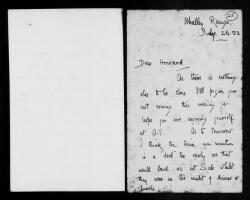 Whalley Range
26 82
Dear Howard
As there is nothing
else to be done I'll forgive you
not coming this evening &
hope you are enjoying yourself
at A.S. As to tomorrow
I think the train you mention
is a deal too early as that
would land us at Sale whilst
they were in the midst of dinner or